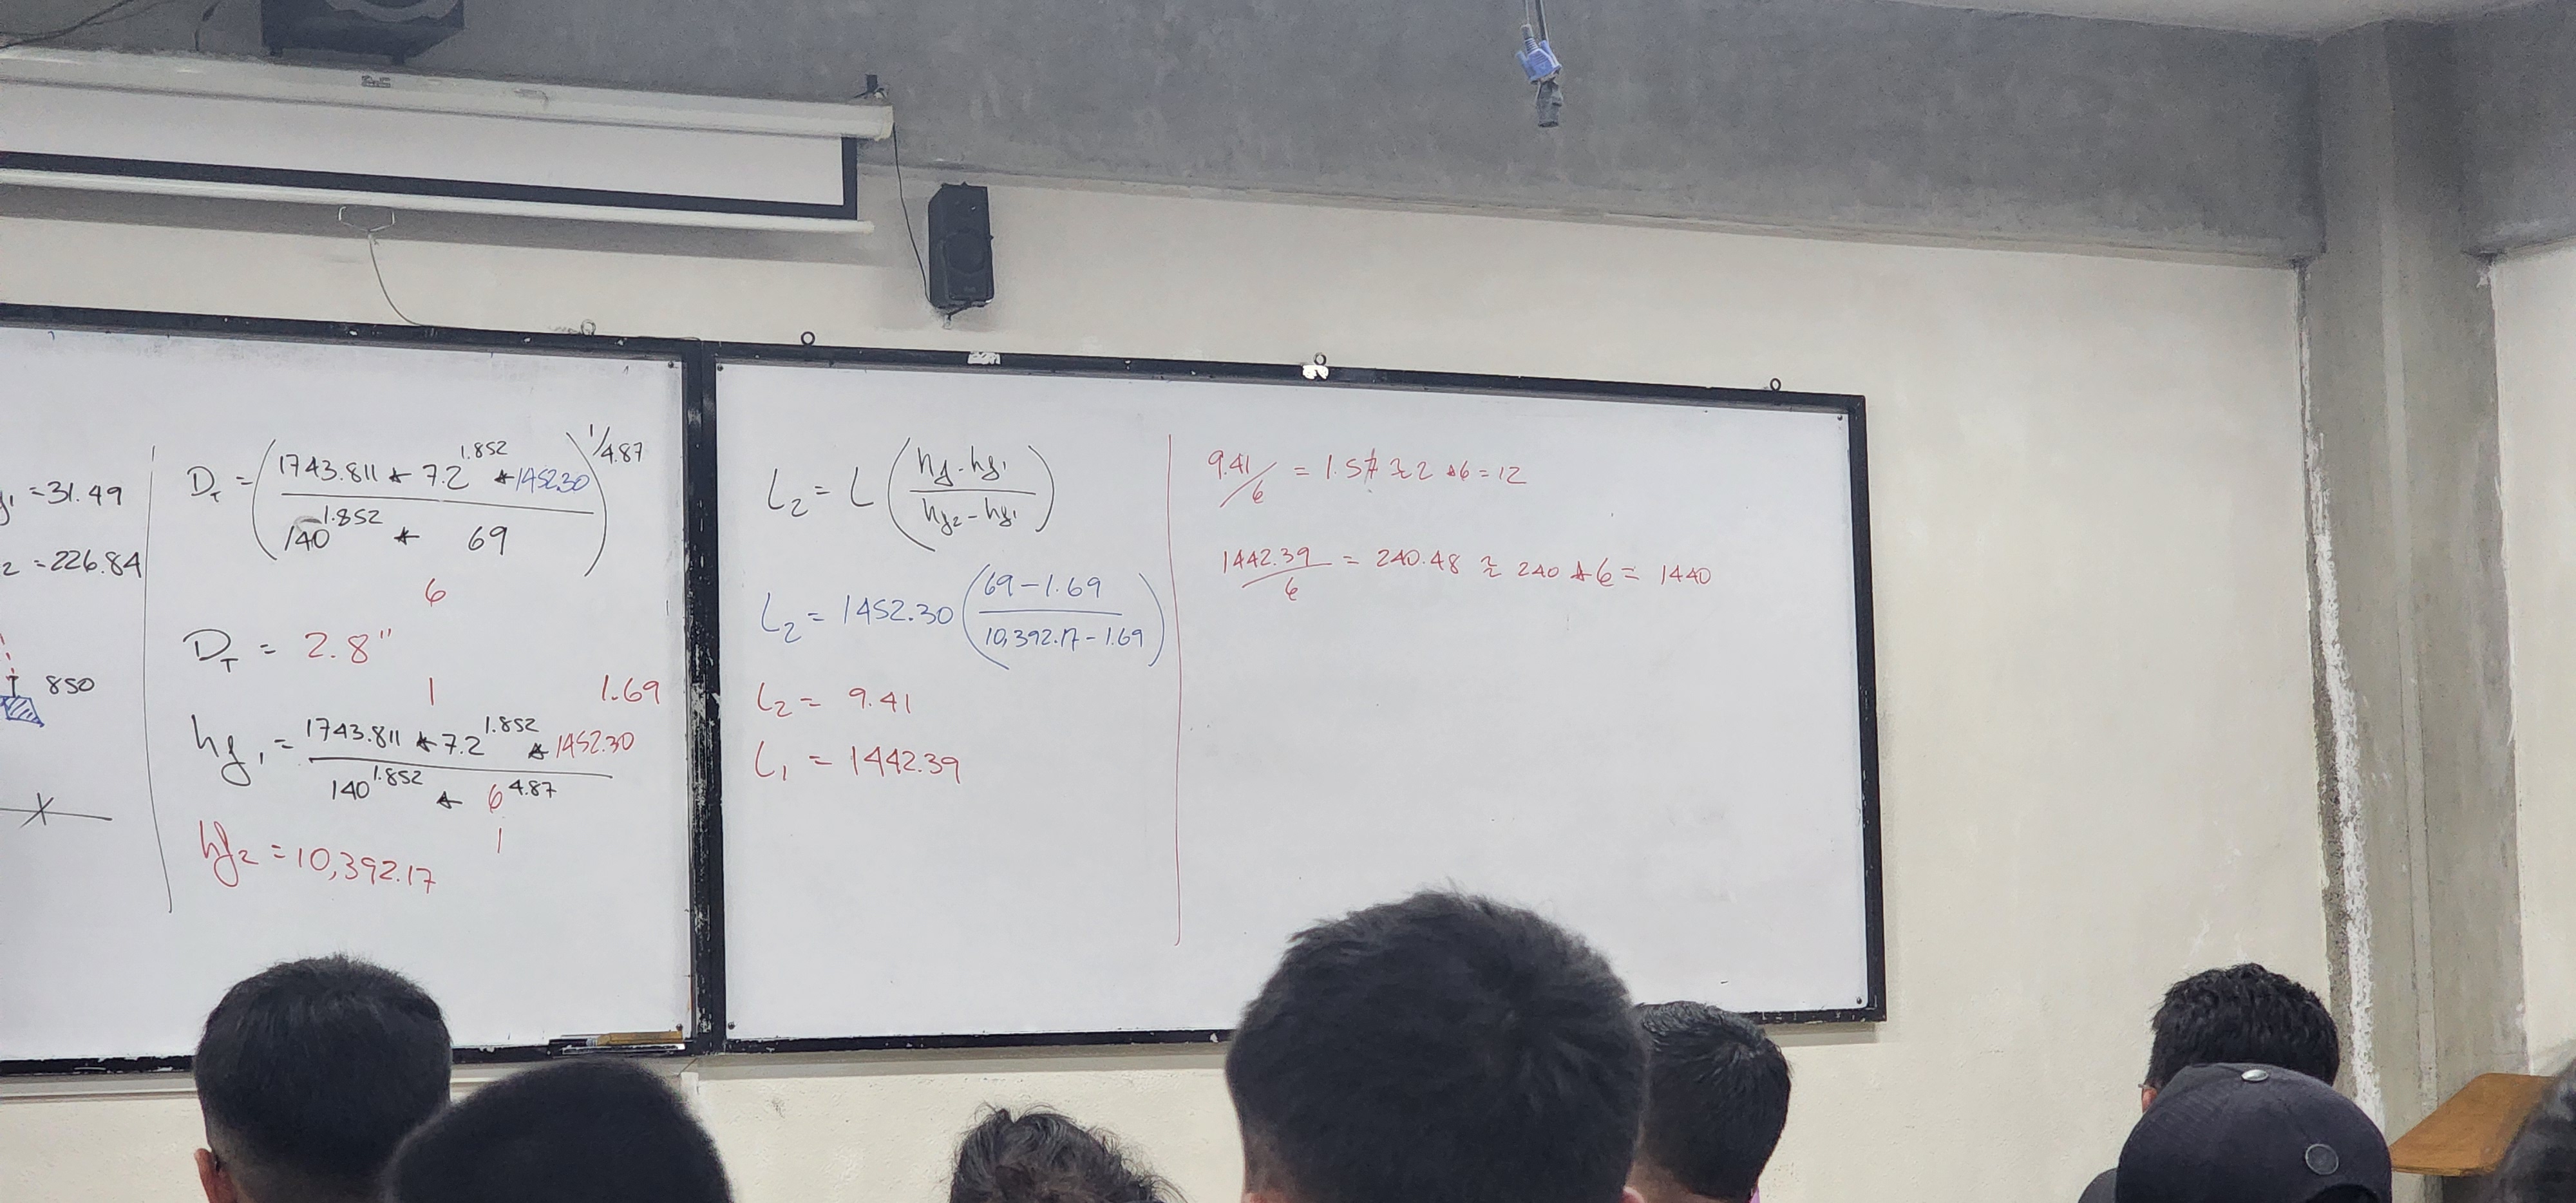 =31.49
2 =226.84
850
D_T = (1743.811 * 7.2^1.852 * 1452.30 / 140^1.852 * 69)^1/4.87
6
D_T = 2.8"
1
1.69
hf_1 = 1743.811 * 7.2^1.852 * 1452.30 / 140^1.852 * 6^4.87
1
hf2 = 10,392.17
L_2 = L (hf - hf1 / hf2 - hf1)
L_2 = 1452.30 (69 - 1.69 / 10,392.17 - 1.69)
L_2 = 9.41
L_1 = 1442.39
9.41/6 = 1.57 ≈ 2 *6 = 12
1442.39/6 = 240.48 ≈ 240 * 6 = 1440